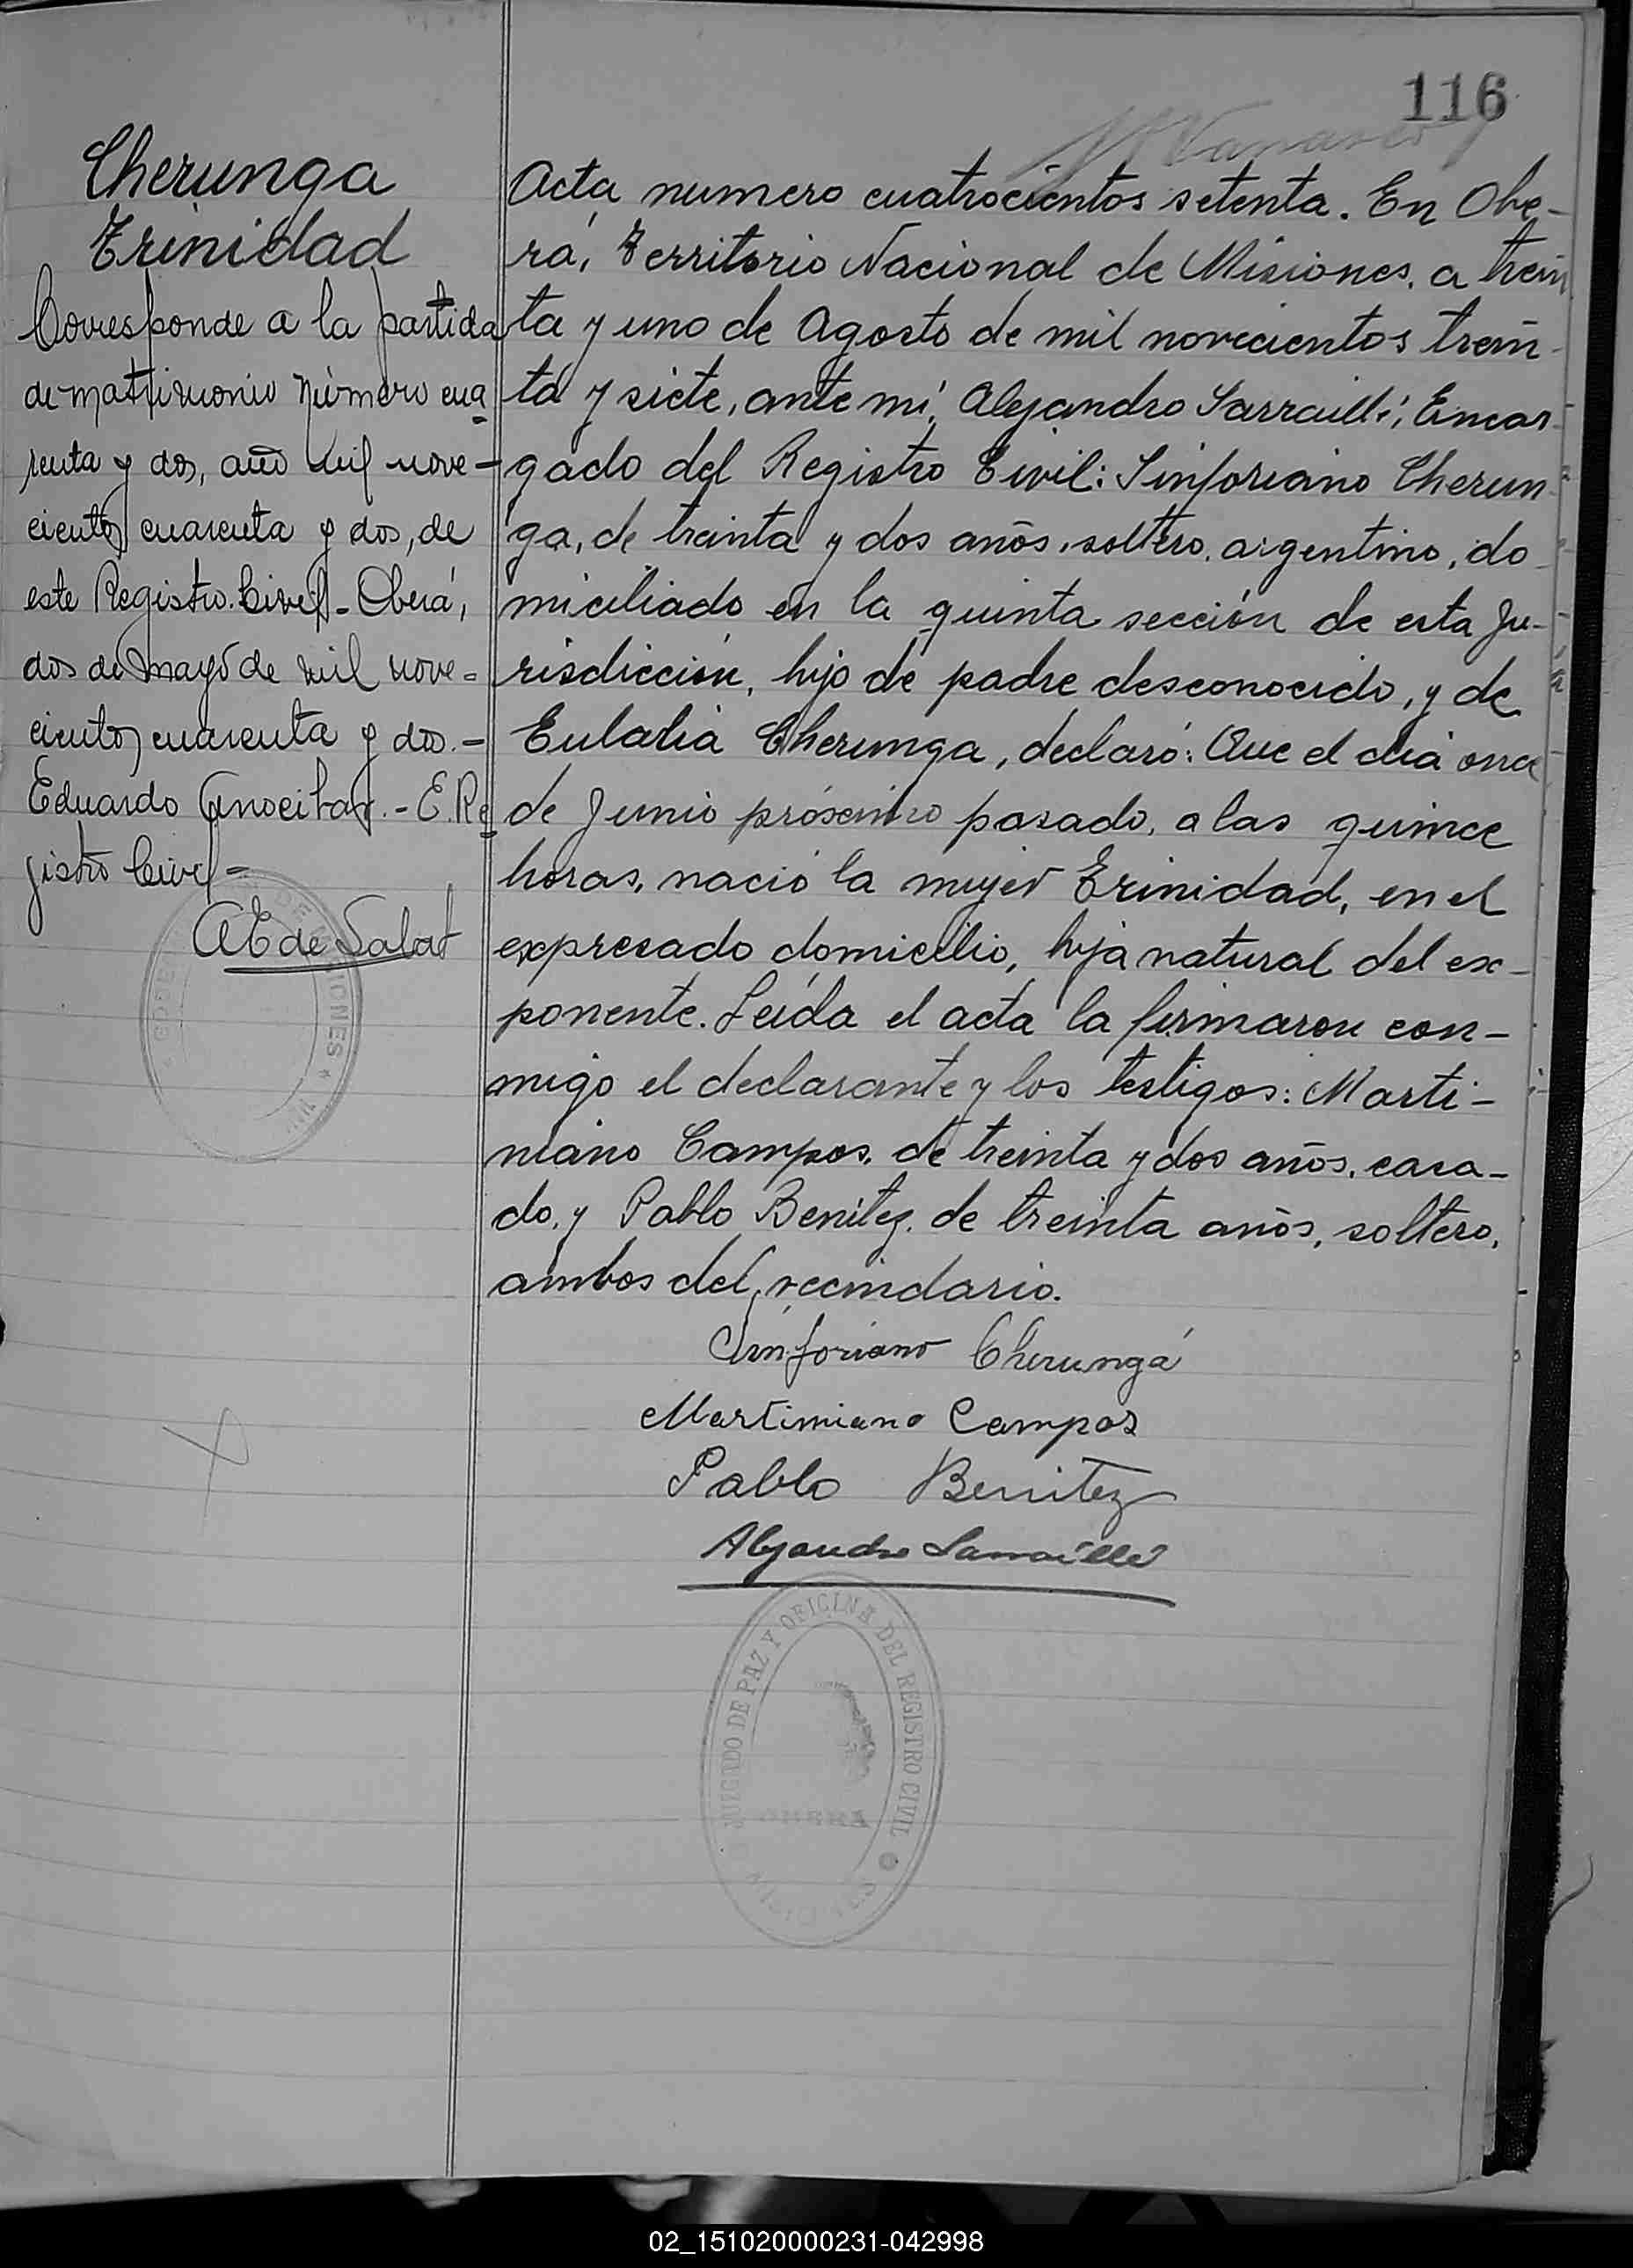 116
Cherunga
Trinidad
Corresponde a la partida
de matrimonio número cua
renta y dos, año mil nove-
cientos cuarenta y dos, de
este Registro Civil - Oberá,
dos de mayo de mil nove=
cientos cuarenta y dos.-
Eduardo .- E. Re
gistro Civil-
Acta numero cuatrocientos setenta. En Obe-
rá, Territorio Nacional de Misiones, a trein
ta y uno de Agosto de mil novecientos trein
ta y siete, ante mí, Alejandro Sarraillé, Encar
gado del Registro Civil: Sinforiano Cherun
ga, de treinta y dos años, soltero, argentino, do
miciliado en la quinta sección de esta Ju-
risdicción, hijo de padre desconocido, y de
Eulalia Cherunga, declaró: Que el día once
de Junio próximo pasado, a las quince
horas, nació la mujer Trinidad, en el
expresado domicilio, hija natural del ex-
ponente. Leída el acta la firmaron con-
migo el declarante y los testigos: Marti-
niano Campos, de treinta y dos años, casa-
do, y Pablo Benitez, de treinta años, soltero,
ambos del vecindario.
Sinforiano Cherunga
Martimiano Campos
Pablo Benitez
Alejandro Sarraillé
JUZGADO DE PAZ Y OFICINA DEL REGISTRO CIVIL
OBERA
MISIONES
02_151020000231-042998